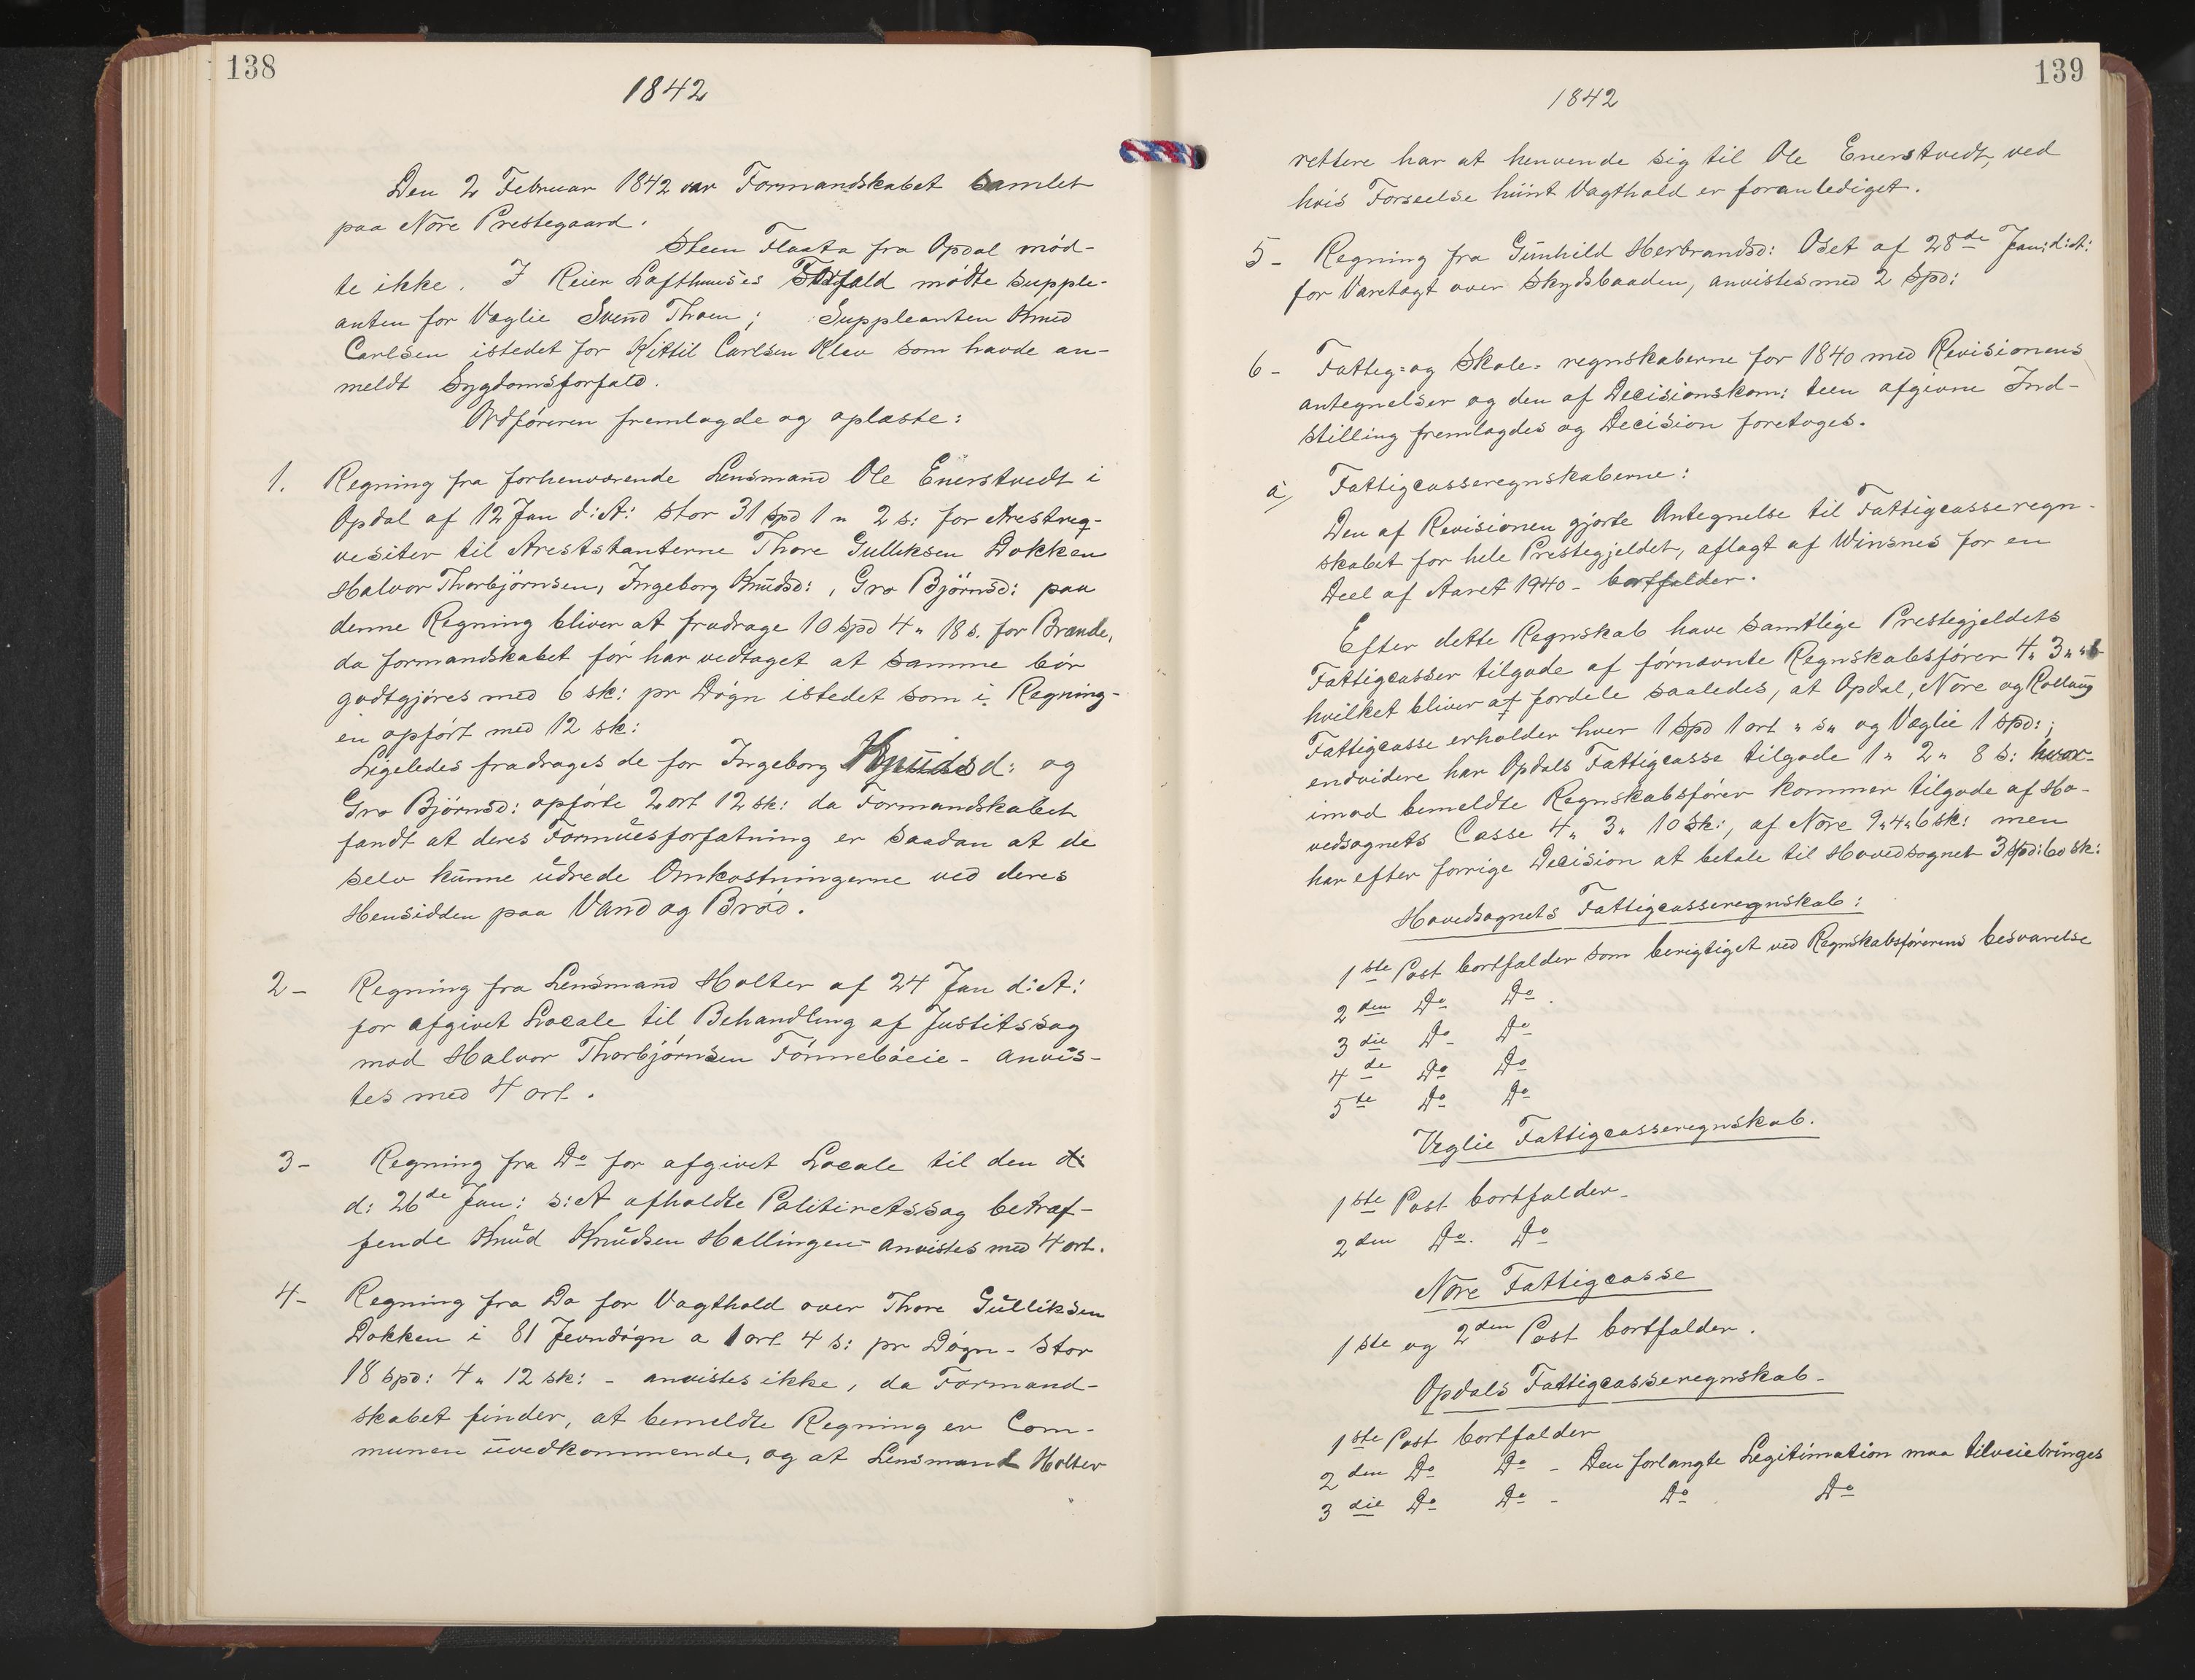 138
1842
Den 2 Februar 1842 var Formandskabet samlet
paa Nore Prestegaard.
Steen Flaata fra Opdal mød-
te ikke. I Reier Lofthuuses Forfald mødte supple-
anten for Væglie Svend Thoen; Suppleanten Knud
Carlsen istedet for Kittil Carlsen Klev som havde an-
meldt Sygdomsforfald.
Ordføreren fremlagde og oplæste:
1. Regning fra forhenværende Lensmand Ole Enerstvedt i
Opdal af 12 Jan d:A: stor 31 spd 1 " 2 s: for Arestreq-
vesiter til Areststanterne Thore Gulliksen Dokken
Halvor Thorbjörnsen, Ingeborg Knudsd:, Gro Björnsd: paa
denne Regning bliver at fradrage 10 spd 4 " 18 s. for Brænde,
da formandskabet før har vedtaget at samme bør
godtgjøres med 6 sk: pr Døgn istedet som i Regning-
en opført med 12 sk:
Ligeledes fradrages de for Ingeborg Knudsd: og
Gro Björnsd: opførte 2 ort 12 sk: da Formandskabet
fandt at deres Formuesforfatning er saadan at de
selv kunne udrede Omkostningerne ved deres
Hensidden paa Vand og Brød.
2 - Regning fra Lensmand Holter af 24 Jan d:A:
for afgivet Locale til Behandling af Justitssag
mod Halvor Thorbjørnsen Fønnebøeie - anvis-
tes med 4 ort.
3 - Regning fra Do for afgivet Locale til den d:
d: 26de Jan: s:A afholdte Politiretssag betræf-
fende Knud Knudsen Hallingen - anvistes med 4 ort.
4 - Regning fra Do for Vagthold over Thore Gulliksen
Dokken i 81 Jevndøgn a 1 ort 4 s: pr Døgn - stor
18 spd: 4 " 12 sk: - anvistes ikke, da Formand-
skabet finder, at bemeldte Regning er Com-
munen uvedkommende, og at Lensmand Holter
139
1842
rettere har at henvende sig til Ole Enerstvedt, ved
hvis Forseelse hiint Vagthold er foranlediget.
5 - Regning fra Gunhild Herbrandsd: Oset af 28de Jan: d:A:
for Varetagt over Skydsbaaden, anvistes med 2 Spd:
6 - Fattig= og Skole= regnskaberne for 1840 med Revisionens
antegnelser og den af Decisionskom: teen afgivne Ind-
stilling fremlagdes og Decision foretoges.
a) Fattigcasseregnskaberne:
Den af Revisionen gjorte Antegnelse til Fattigcasseregn-
skabet for hele Prestegjeldet, aflagt af Winsnes for en
Deel af Aaret 1940 - bortfalder.
Efter dette Regnskab have samtlige Prestegjeldets
Fattigcasser tilgode af førnævnte Regnskabsfører 4 " 3 "
hvilket bliver at fordele saaledes, at Opdal, Nore og Rollaug
Fattigcasse erholder hver 1 spd 1 ort " s " og Væglie 1 spd:;
endvidere har Opdals Fattigcasse tilgode 1 " 2 " 8 s: hvor-
imod bemeldte Regnskabsfører kommer tilgode af Ho-
vedsognets Casse 4 " 3 " 10 Sk:, af Nore 9 " 4 " 6 sk: men
har efter forrige Decision at betale til Hovedsognet 3 spd: 60 sk:
Hovedsognets Fattigcasseregnskab:
1ste Post bortfalder som berigtiget ved Regnskabsførerens besvarelse
2den Do Do.
3die Do Do
4de Do Do
5te Do Do
Veglie Fattigcasseregnskab.
1ste Post bortfalder -
2den Do. Do
Nore Fattigcasse
1ste og 2den Post bortfalder.
Opdals Fattigcasseregnskab -
1ste Post bortfalder
2den Do Do - Den forlangte Legitimation maa tilveiebringes
3die Do Do - Do Do